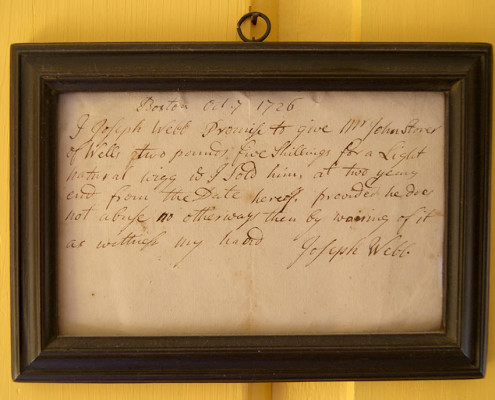 Boston Oct 7 1726
I Joseph Webb Promise to give Mr John Stover
of Wells two pounds five Shillings for a Light
natural wigg is I Sold him, at two years
end from the Date hereoff provided he doe
not abuse no otherways then by waring of it
as wittness my hand Joseph Webb